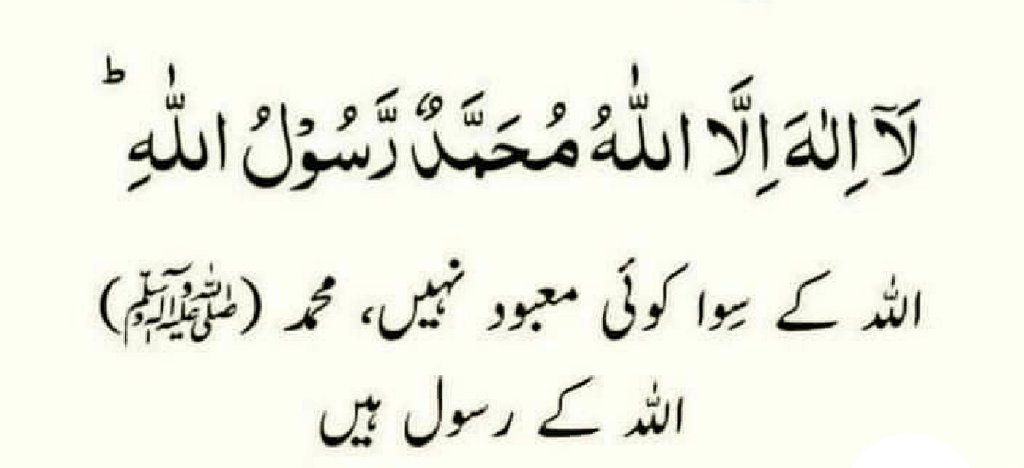 لَآ اِلٰهَ اِلَّا اللّٰهُ مُحَمَّدٌ رَّسُوْلُ اللّٰهِ ؕ
اللہ کے سِوا کوئی معبود نہیں، محمد (ﷺ)
اللہ کے رسول ہیں